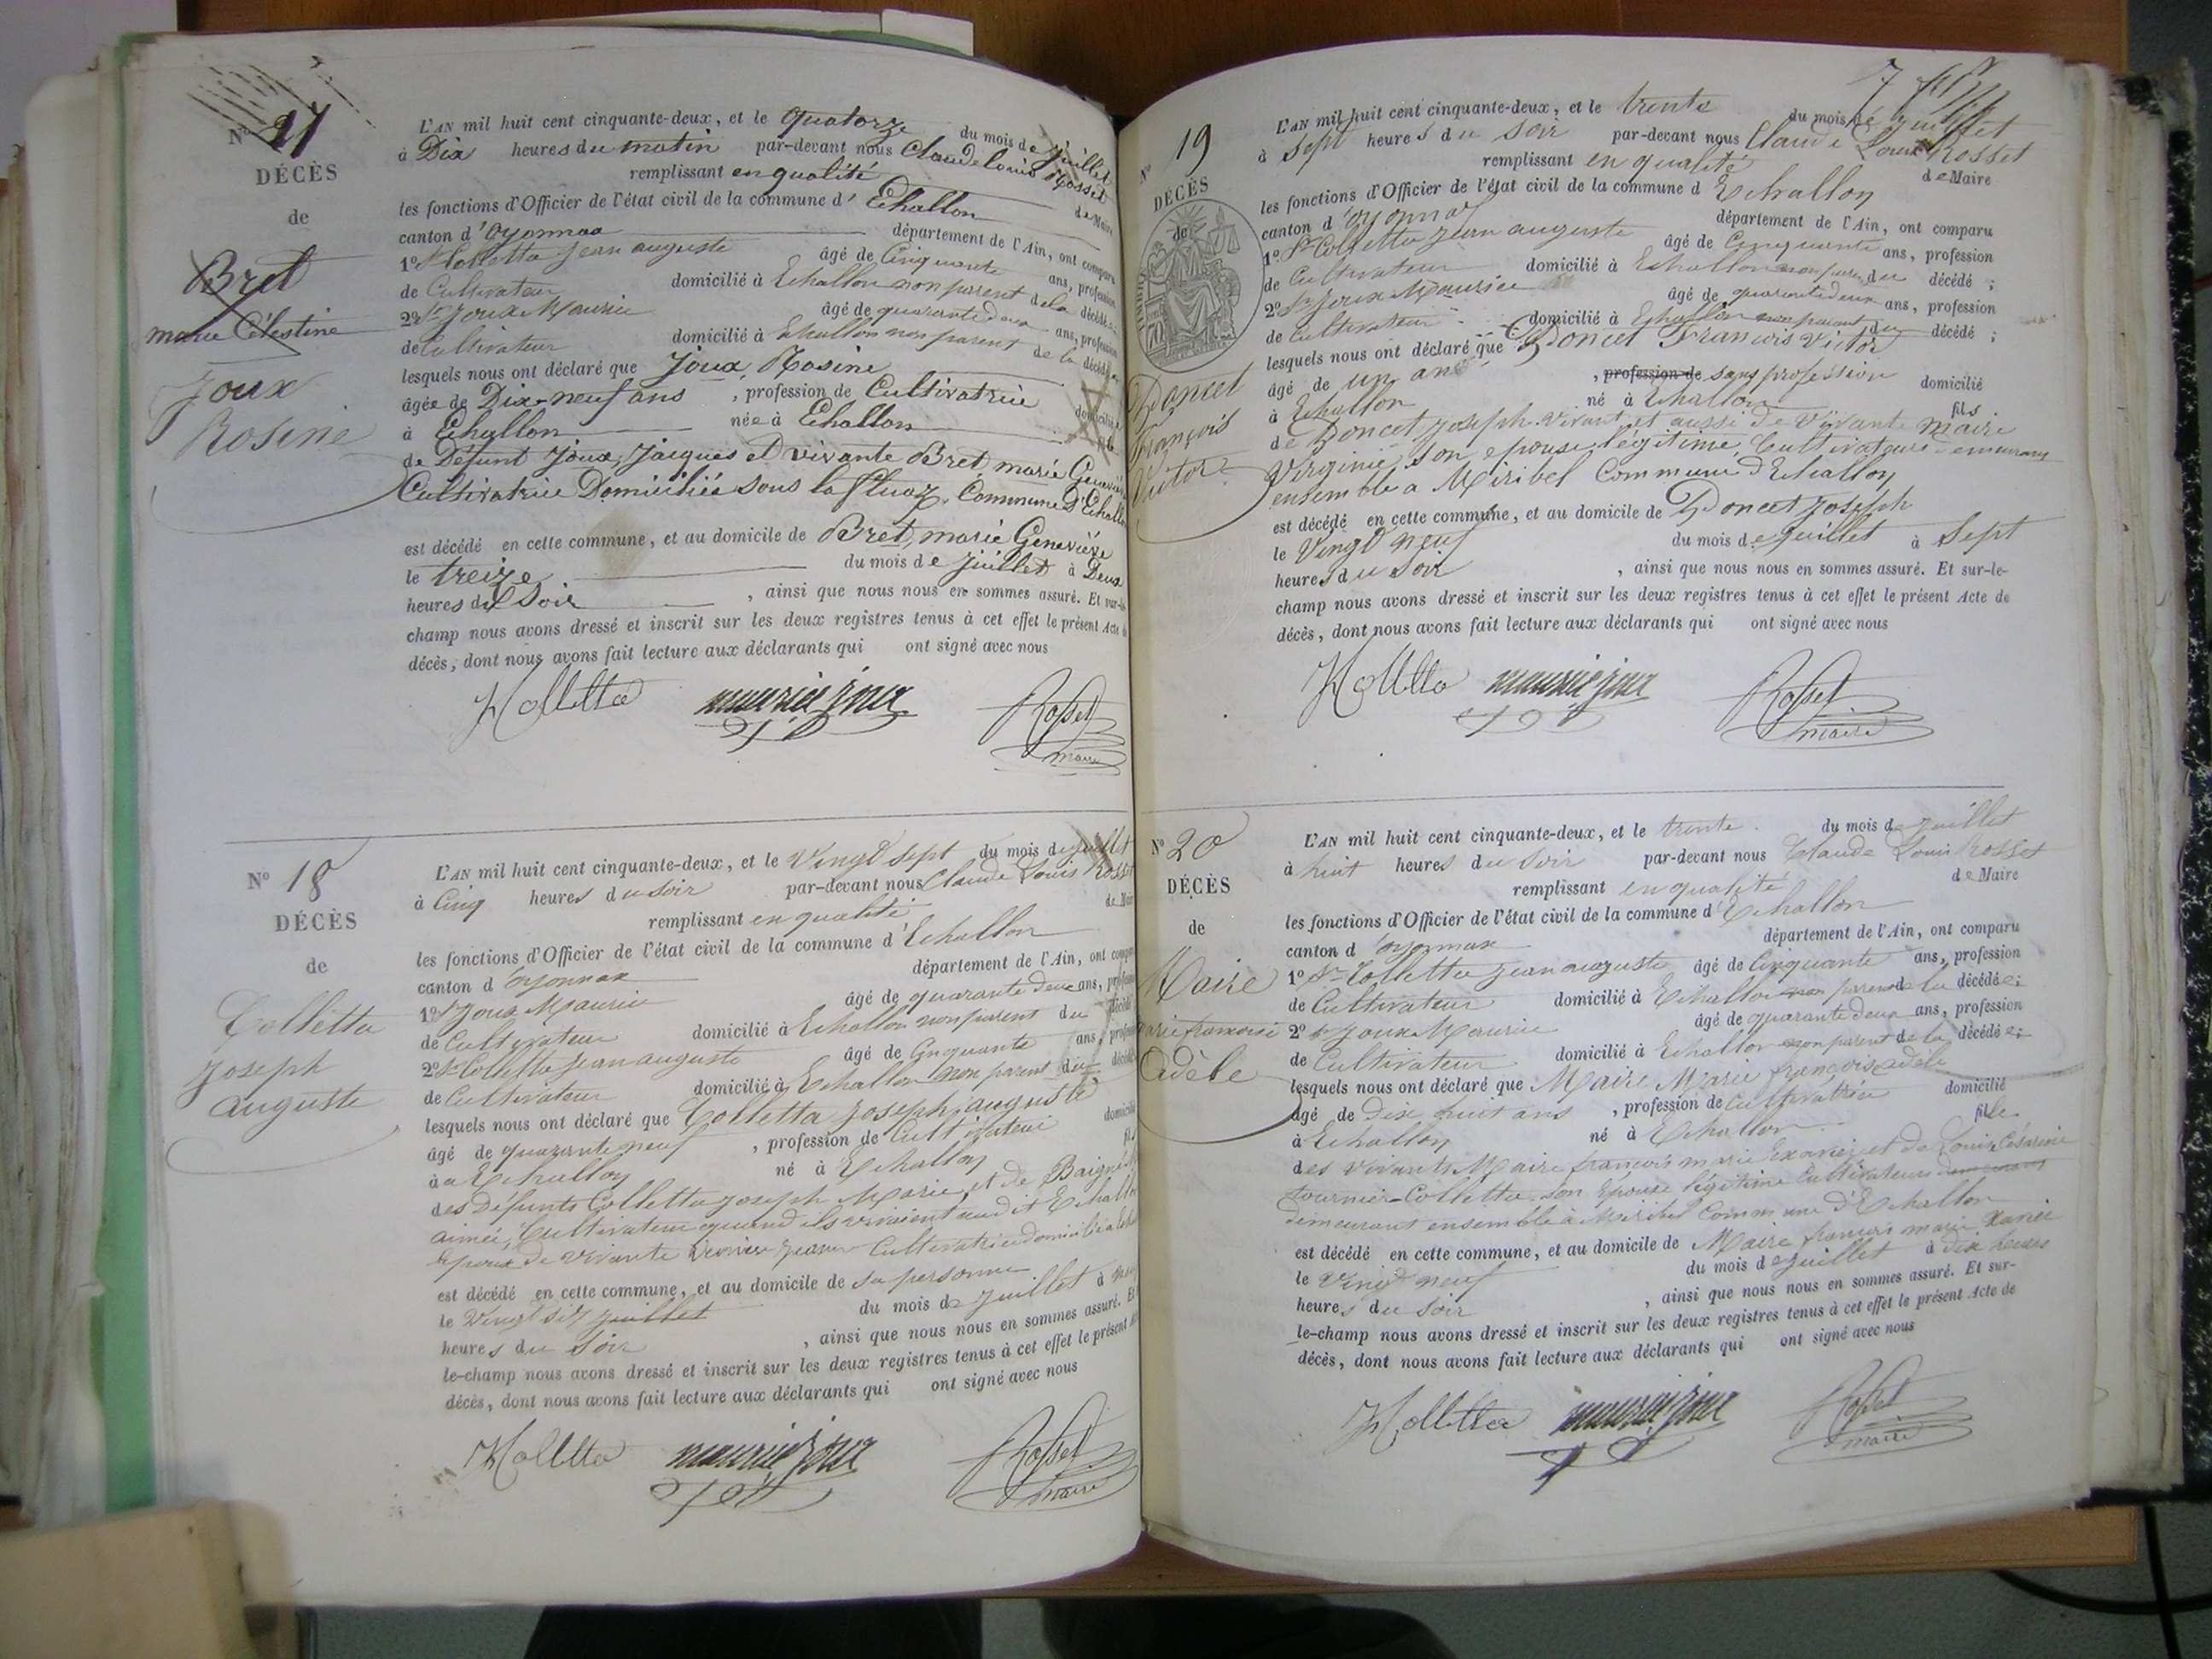 Nº 21
DÉCÈS
de
Bret
marie Célestine
Joux
Rosine
L'AN mil huit cent cinquante-deux, et le quatorze du mois de juillet
à Dix heures du matin par-devant nous Claude Louis Rosset
remplissant en qualité de Maire
les fonctions d'Officier de l'état civil de la commune d'Echallon
canton d'Oyonnax département de l'Ain, ont comparu
1º Sr Colletta Jean auguste âgé de Cinquante ans, profession
de Cultivateur domicilié à Echallon non parent de la décédée
2º Sr Joux Maurice âgé de quarante deux ans, profession
de Cultivateur domicilié à Echallon non parent de la décédée
lesquels nous ont déclaré que Joux, Rosine
âgée de Dix-neuf ans, profession de Cultivatrice
à Echallon née à Echallon
de Défunt Joux, Jacques et vivante Bret marie Geneviève
Cultivatrice Domiciliée sous la Commune d'Echallon
est décédé en cette commune, et au domicile de Bret, marie Geneviève
le treize du mois de juillet à Deux
heures du Soir, ainsi que nous nous en sommes assuré. Et sur-le-
champ nous avons dressé et inscrit sur les deux registres tenus à cet effet le présent Acte de
décès, dont nous avons fait lecture aux déclarants qui ont signé avec nous
Colletta maurice joux Rosset
maire
Nº 18
DÉCÈS
de
Colletta
joseph
auguste
L'AN mil huit cent cinquante-deux, et le Vingt sept du mois de juillet
à Cinq heures du soir par-devant nous Claude Louis Rosset
remplissant en qualité de Maire
les fonctions d'Officier de l'état civil de la commune d'Echallon
canton d'oyonnax département de l'Ain, ont comparu
1º Sr Joux Maurice âgé de quarante deux ans, profession
de Cultivateur domicilié à Echallon non parent du décédé
2º Sr Colletta Jean auguste âgé de Cinquante ans, profession
de Cultivateur domicilié à Echallon non parent du décédé
lesquels nous ont déclaré que Colletta joseph auguste
âgé de quarante neuf, profession de Cultivateur domicilié
à a Echallon né à Echallon fils
des Défunts Colletta joseph Marie et de
aimée, Cultivateurs quand ils vivaient audit Echallon
Epoux de vivante Cultivatrice domiciliée à
est décédé en cette commune, et au domicile de sa personne
le Vingt six juillet du mois de juillet à
heures du Soir, ainsi que nous nous en sommes assuré. Et
le-champ nous avons dressé et inscrit sur les deux registres tenus à cet effet le présent
décès, dont nous avons fait lecture aux déclarants qui ont signé avec nous
Colletta maurice joux Rosset
maire
Nº 19
DÉCÈS
de
Poncet
François
Victor
L'AN mil huit cent cinquante-deux, et le trente du mois de juillet
à Sept heures du soir par-devant nous Claude Louis Rosset
remplissant en qualité de Maire
les fonctions d'Officier de l'état civil de la commune d Echallon
canton d'oyonnax département de l'Ain, ont comparu
1º Sr Colletta jean auguste âgé de Cinquante ans, profession
de Cultivateur domicilié à Echallon non parent du décédé ;
2º Sr Joux Maurice âgé de quarante deux ans, profession
de Cultivateur domicilié à Echallon non parent du décédé ;
lesquels nous ont déclaré que Poncet François Victor
âgé de un an, profession de sans profession domicilié
à Echallon né à Echallon fils
de Poncet joseph vivant et aussi de vivante Maire
Virginie son epouse légitime, Cultivateurs demeurant
ensemble a Miribel Commune d'Echallon
est décédé en cette commune, et au domicile de Poncet Joseph
le Vingt neuf du mois de juillet à Sept
heures du Soir, ainsi que nous nous en sommes assuré. Et sur-le-
champ nous avons dressé et inscrit sur les deux registres tenus à cet effet le présent Acte de
décès, dont nous avons fait lecture aux déclarants qui ont signé avec nous
Colletta maurice joux Rosset
maire
Nº 20
DÉCÈS
de
Maire
marie francoise
Adèle
L'AN mil huit cent cinquante-deux, et le trente du mois de juillet
à huit heures du soir par-devant nous Claude Louis Rosset
remplissant en qualité de Maire
les fonctions d'Officier de l'état civil de la commune d'Echallon
canton d'oyonnax département de l'Ain, ont comparu
1º Sr Colletta jean auguste âgé de Cinquante ans, profession
de Cultivateur domicilié à Echallon non parent de la décédée ;
2º Sr Joux Maurice âgé de quarante deux ans, profession
de Cultivateur domicilié à Echallon non parent de la décédée ;
lesquels nous ont déclaré que Maire Marie françoise adèle
âgé de dix huit ans, profession de Cultivatrice domicilié
à Echallon né à Echallon fille
des vivants Maire françois marie Exavier et de Louise Césarine
tournier-Colletta son Epouse légitime Cultivateurs demeurant
demeurant ensemble à Miribel Commune d'Echallon
est décédé en cette commune, et au domicile de Maire françois marie Xavier
le Vingt neuf du mois de juillet à dix heures
heures du soir, ainsi que nous nous en sommes assuré. Et sur-
le-champ nous avons dressé et inscrit sur les deux registres tenus à cet effet le présent Acte de
décès, dont nous avons fait lecture aux déclarants qui ont signé avec nous
Colletta maurice joux Rosset
maire